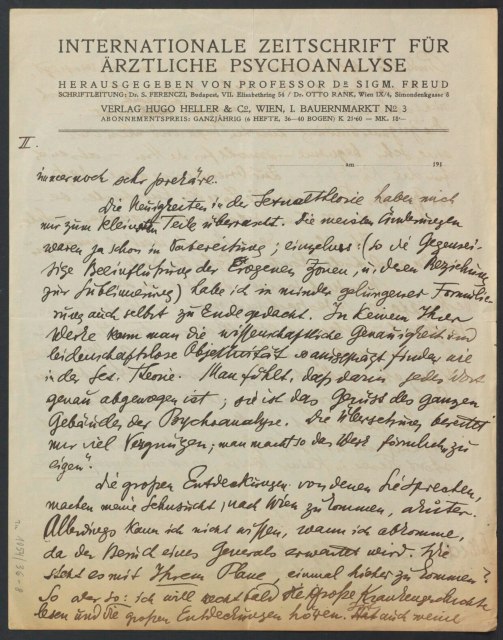 INTERNATIONALE ZEITSCHRIFT FÜR
ÄRZTLICHE PSYCHOANALYSE
HERAUSGEGEBEN VON PROFESSOR DR SIGM. FREUD
SCHRIFTLEITUNG: Dr. S. FERENCZI, Budapest, VII. Elisabethring 54 / Dr. OTTO RANK, Wien IX/4, Simondenkgasse 8
VERLAG HUGO HELLER & Co., WIEN, I. BAUERNMARKT No 3
ABONNEMENTSPREIS: GANZJÄHRIG (6 HEFTE, 36—40 BOGEN) K 21·60 = MK. 18·—
am 191
II.
immer noch sehr prekäre.
Die Neuigkeiten in der Sexualtheorie haben mich
nur zum kleinsten Teile überrascht. Die meisten Änderungen
waren ja schon in Vorbereitung; einzelnes: (so die Gegensei-
tige Beeinflußung der Erogenen Zonen, u. deren Beziehung
zur Sublimierung) habe ich in minder gelungener Formulie-
rung auch selbst zu Ende gedacht. In keinem Ihrer
Werke kann man die wissenschaftliche Genauigkeit und
leidenschaftslose Objektivität so ausgeprägt finden wie
in der Sex. Theorie. Man fühlt, daß darin jedes Wort
genau abgewogen ist; sie ist das Gerüst des ganzen
Gebäudes der Psychoanalyse. Die Übersetzung bereitet
mir viel Vergnügen; man macht so das Werk förmlich „zu
eigen“.
Die großen Entdeckungen, von denen Sie sprechen,
machen meine Sehnsucht, nach Wien zu kommen, akuter.
Allerdings kann ich nicht wissen, wann ich abkomme,
da der Besuch eines Generals erwartet wird. Wie
steht es mit Ihrem Plane, einmal hieher zu kommen?
So oder so: ich will recht bald die große Krankengeschichte
lesen und die großen Entdeckungen hören. Hat auch meine